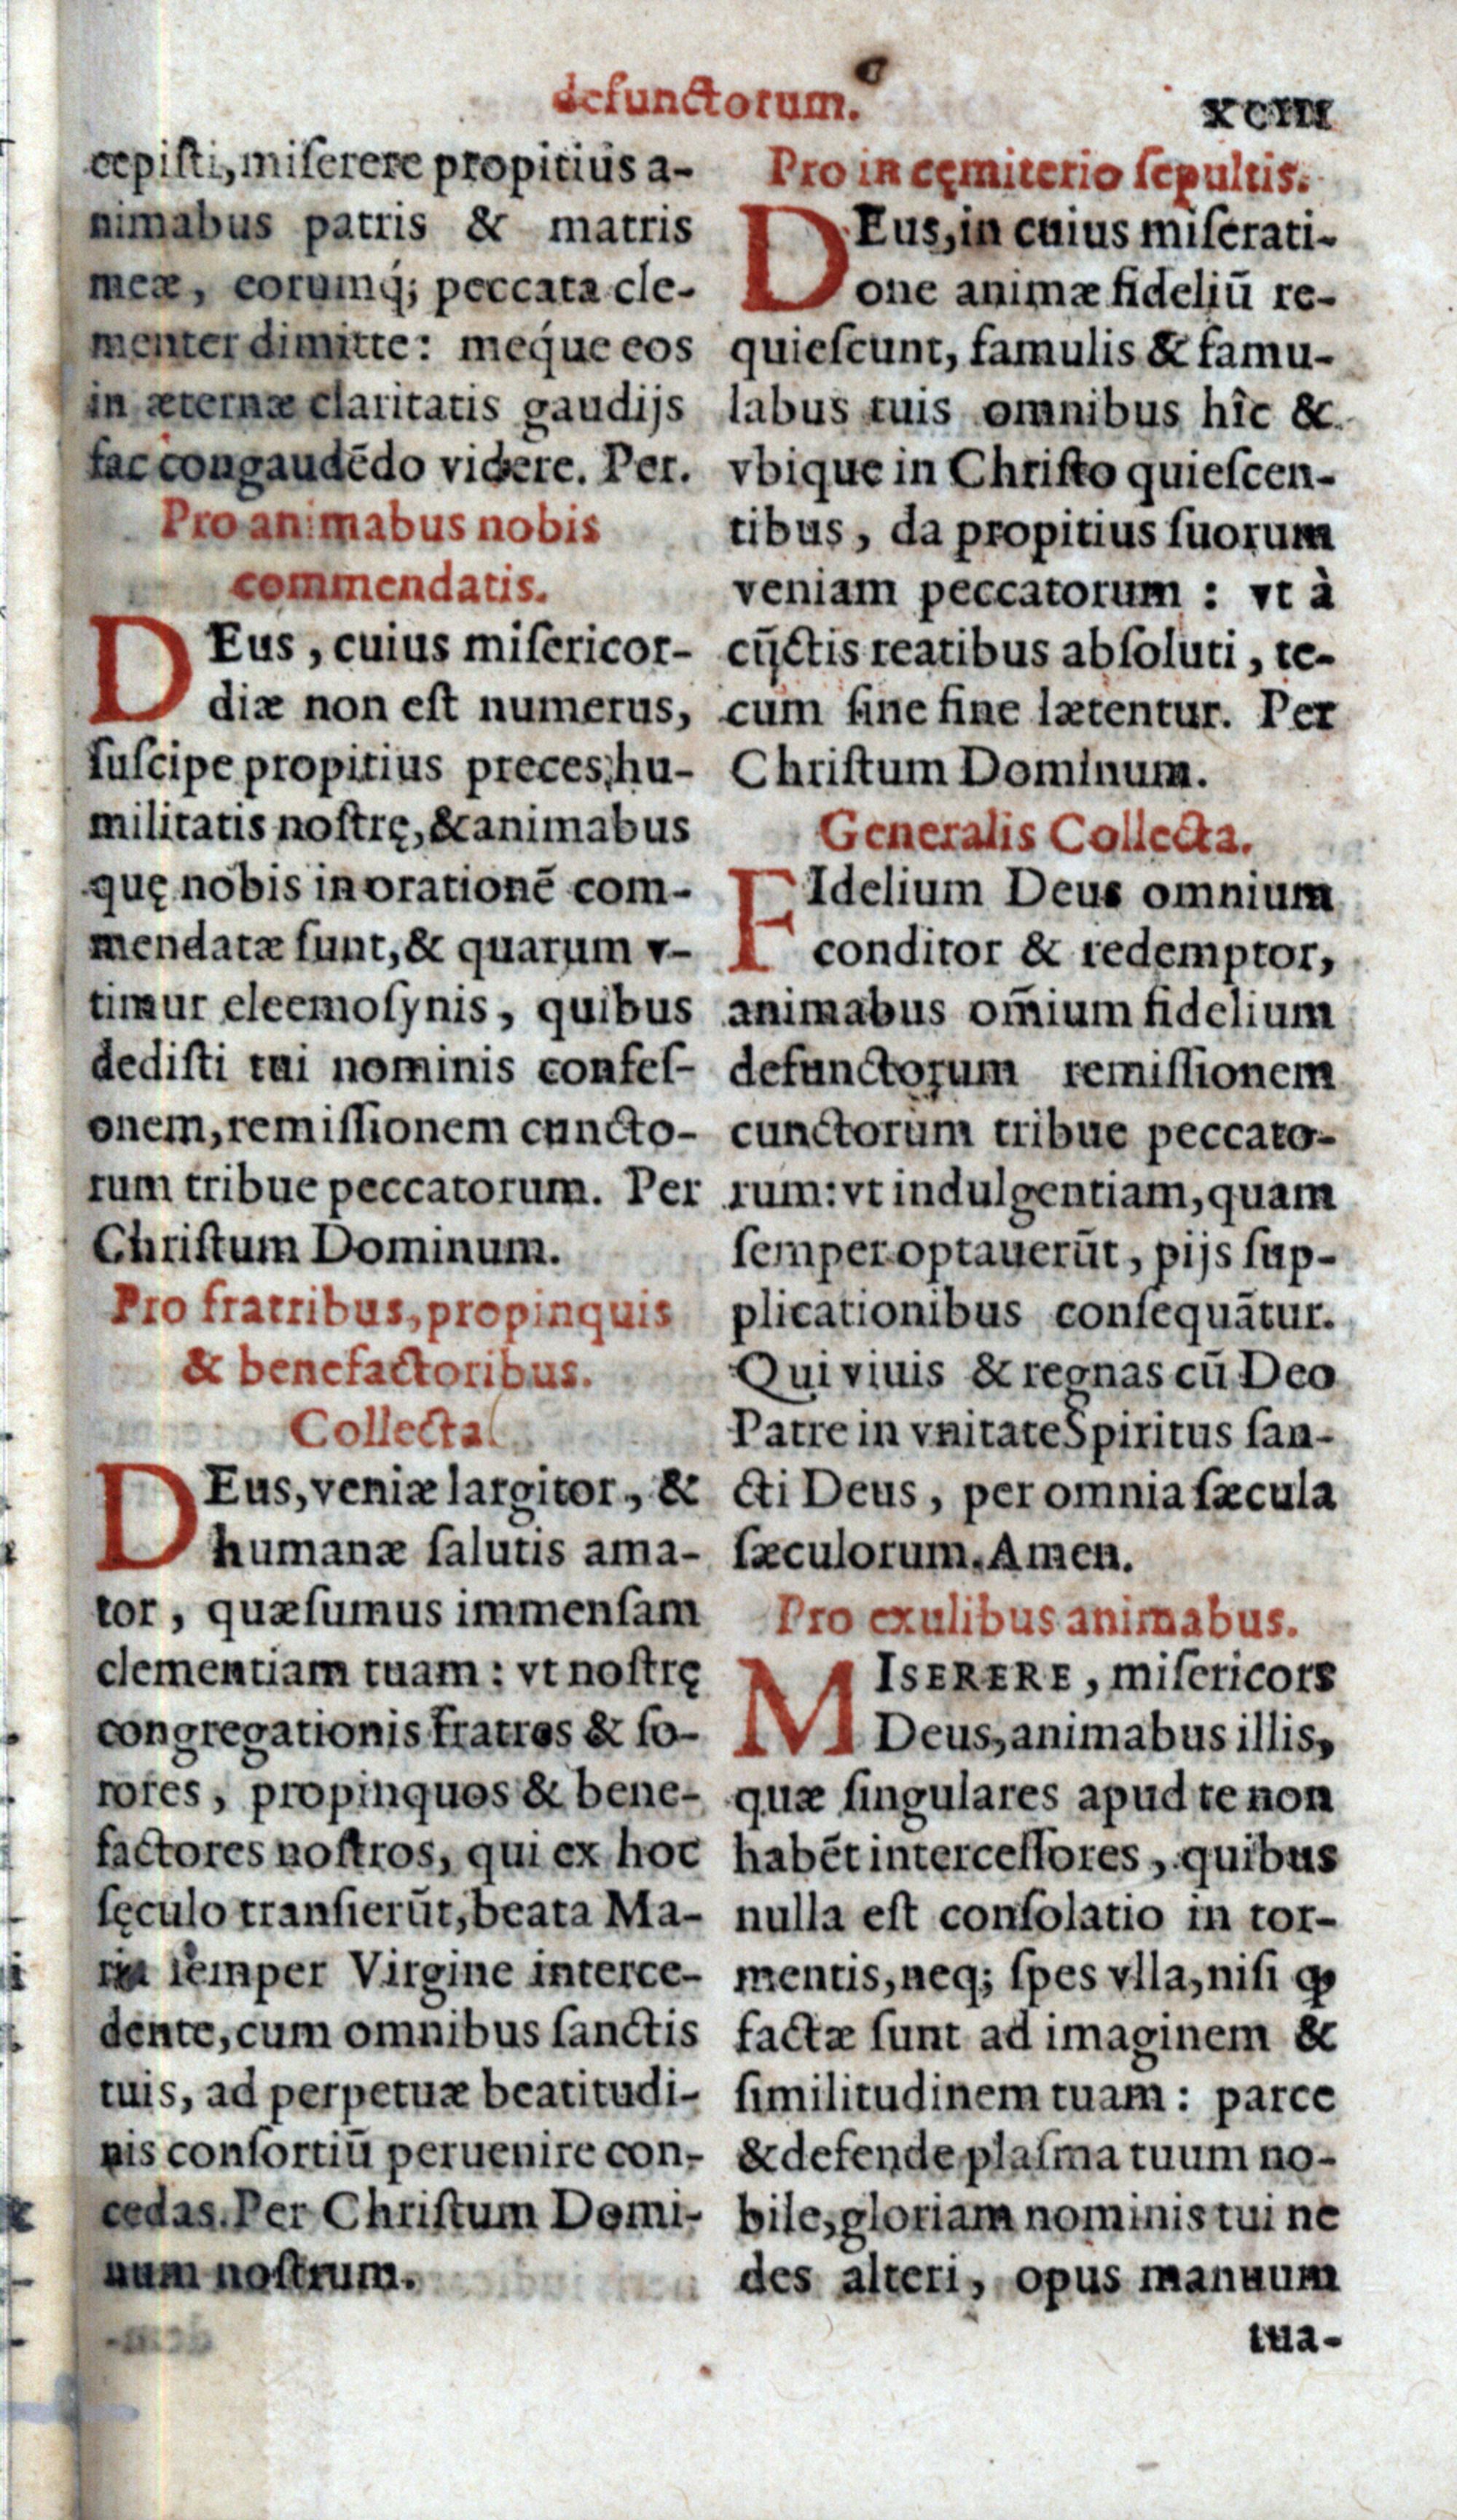 defunctorum.
xciii
cepiſti, miſerere propitius a-
nimabus patris & matris
meæ, eorumq́; peccata cle-
menter dimitte: meq́ue eos
in æternæ claritatis gaudijs
fac congaudēdo videre. Per.
Pro animabus nobis
commendatis.
DEus, cuius miſericor-
diæ non eſt numerus,
ſuſcipe propitius preces, hu-
militatis noſtrę, & animabus
quę nobis in orationē com-
mendatæ ſunt, & quarum v-
timur eleemoſynis, quibus
dediſti tui nominis confeſ-
onem, remiſſionem cuncto-
rum tribue peccatorum. Per
Chriſtum Dominum.
Pro fratribus, propinquis
& benefactoribus.
Collecta.
DEus, veniæ largitor, &
humanæ ſalutis ama-
tor, quæſumus immenſam
clementiam tuam: vt noſtrę
congregationis fratres & ſo-
rores, propinquos & bene-
factores noſtros, qui ex hoc
ſęculo tranſierūt, beata Ma-
ria ſemper Virgine interce-
dente, cum omnibus ſanctis
tuis, ad perpetuæ beatitudi-
nis conſortiū peruenire con-
cedas. Per Chriſtum Domi-
num noſtrum.
Pro in cęmiterio ſepultis.
DEus, in cuius miſerati-
one animæ fideliū re-
quieſcunt, famulis & famu-
labus tuis omnibus hîc &
vbique in Chriſto quieſcen-
tibus, da propitius ſuorum
veniam peccatorum: vt à
cūctis reatibus abſoluti, te-
cum ſine fine lætentur. Per
Chriſtum Dominum.
Generalis Collecta.
FIdelium Deus omnium
conditor & redemptor,
animabus om̄ium fidelium
defunctorum remiſſionem
cunctorum tribue peccato-
rum: vt indulgentiam, quam
ſemper optauerūt, pijs ſup-
plicationibus conſequātur.
Qui viuis & regnas cū Deo
Patre in vnitate Spiritus ſan-
cti Deus, per omnia ſæcula
ſæculorum. Amen.
Pro exulibus animabus.
MISERERE, miſericors
Deus, animabus illis,
quæ ſingulares apud te non
habēt interceſſores, quibus
nulla eſt conſolatio in tor-
mentis, neq; ſpes vlla, niſi ꝙ
factæ ſunt ad imaginem &
ſimilitudinem tuam: parce
& defende plaſma tuum no-
bile, gloriam nominis tui ne
des alteri, opus manuum
tua-